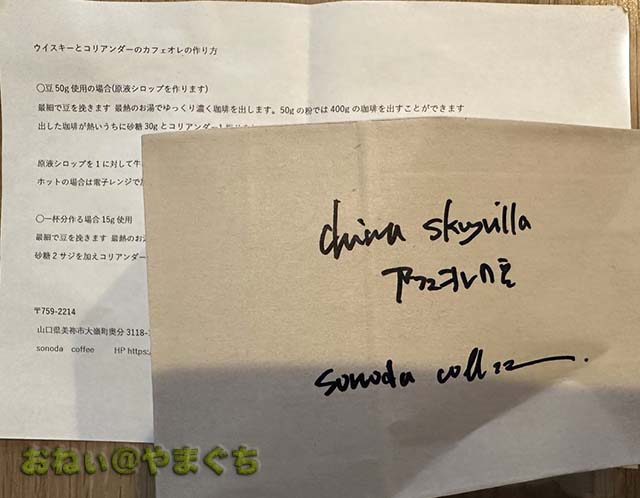 ウイスキーとコリアンダーのカフェオレの作り方
〇豆50g使用の場合(原液シロップを作ります)
最細で豆を挽きます 最熱のお湯でゆっくり濃く珈琲を出します。50gの粉では400gの珈琲を出すことができます
出した珈琲が熱いうちに砂糖30gとコリアンダー1
原液シロップを1に対して牛
ホットの場合は電子レンジで
〇一杯分作る場合15g使用
最細で豆を挽きます 最熱のお
砂糖2サジを加えコリアンダー
〒759-2214
山口県美祢市大嶺町奥分3118-
sonoda coffee HP https:
china skyrilla
カフェオレの豆
sonoda coffee
おねぃ@やまぐち